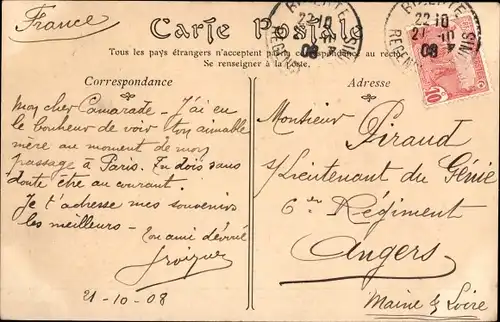 France
Carte Postale
Tous les pays étrangers n'acceptent pas la correspondance au recto
Se renseigner à la Poste.
Correspondance
Adresse
Mon cher Camarade - J'ai eu
le bonheur de voir ton aimable
mère au moment de mon
passage à Paris. Tu dois sans
doute être au courant.
Je t'adresse mes souvenirs
les meilleurs - Ton ami dévoué
21-10-08
Monsieur Piraud
s/Lieutenant du Génie
6e Régiment
Angers
Maine & Loire
BIZERTE
22-10
08
REGENCE
10